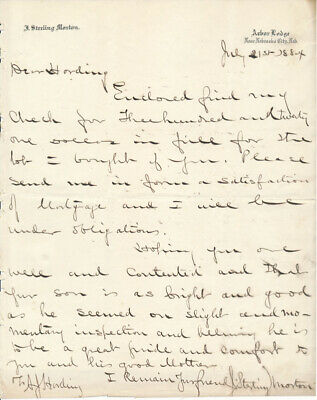 J. Sterling Morton.
Arbor Lodge
Near Nebraska City, Neb.
July 21st 1884
Dear Harding
Enclosed find my
check for Three hundred and twenty
one dollars in full for the
lot I bought of you. Please
send me in form a satisfaction
of Mortgage and I will be
under obligations.
Hoping you are
well and contented and that
your son is as bright and good
as he seemed on slight and mo-
mentary inspection and believing he is
to be a great pride and comfort to
you and his good Mother.
I Remain Your friend J. Sterling Morton
To Harding